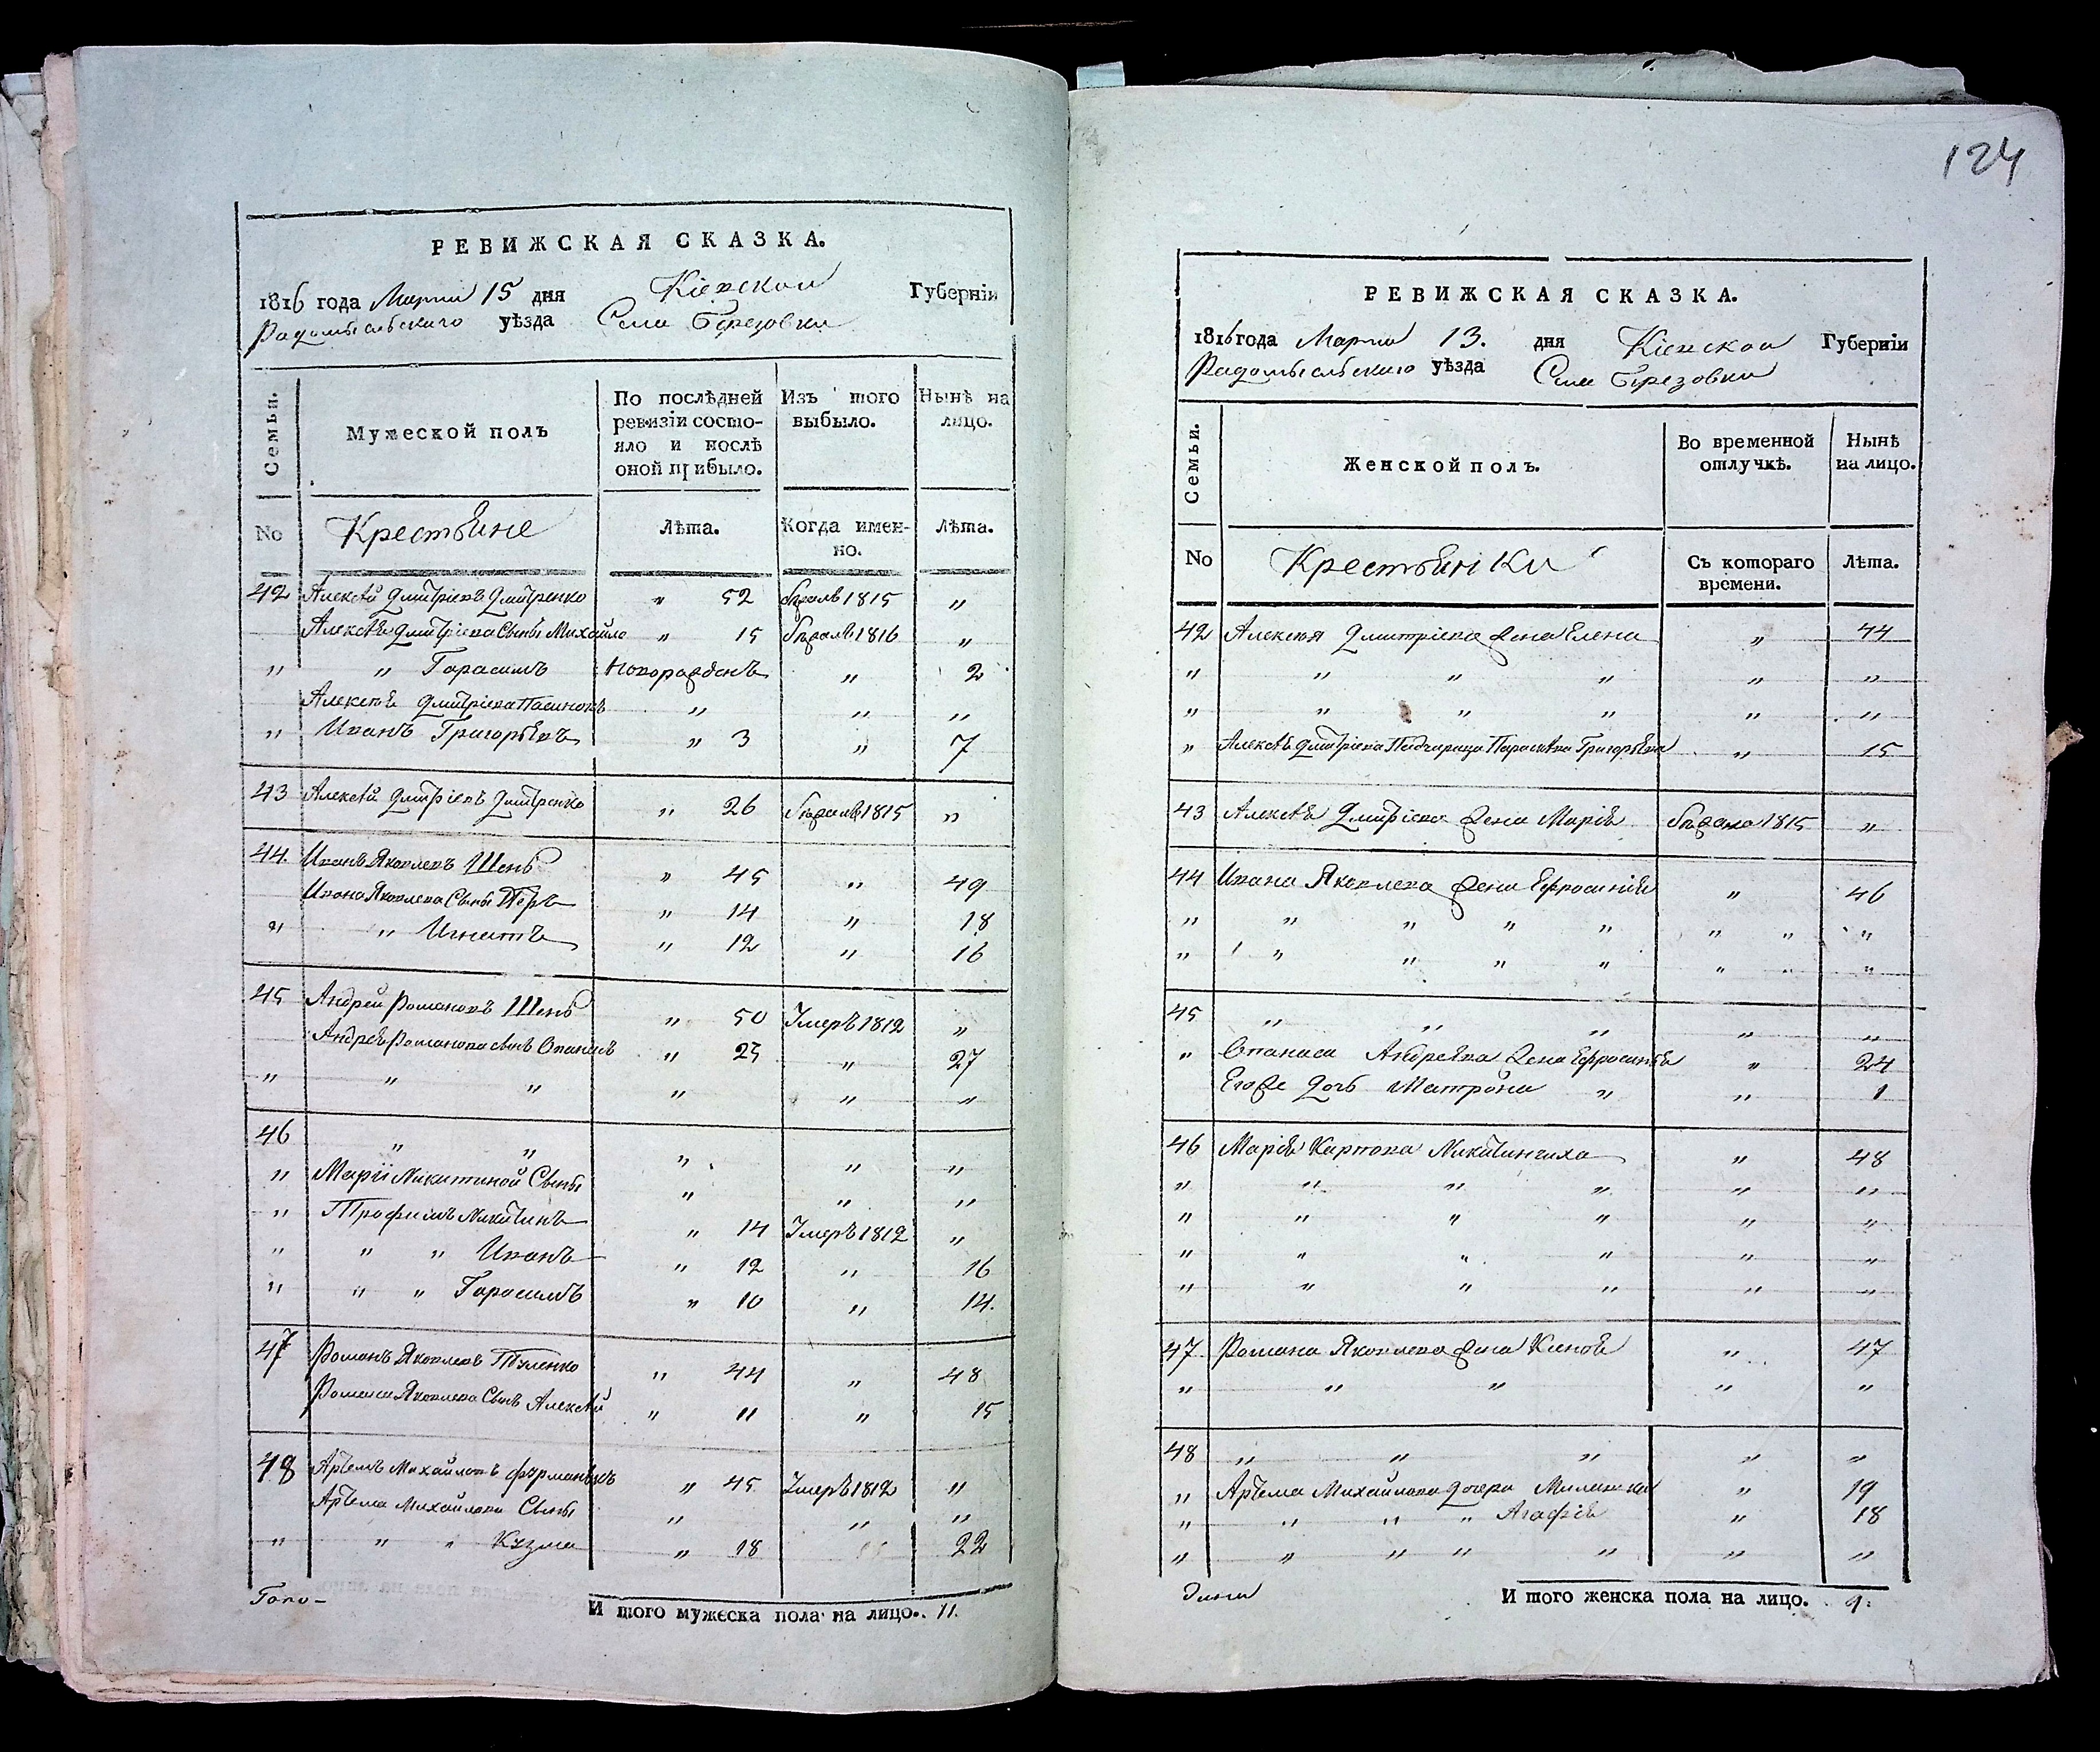 РЕВИЖСКАЯ СКАЗКА.
1816 года Марта 15 дня Кіевской Губерніи
Радомысльскаго уѣзда Села Березовки
Семьи. Мужеской полъ По послѣдней ревизіи состояло и послѣ оной прибыло. Изъ того выбыло. Нынѣ на лицо.
No Крестьяне Лѣта. Когда именно. Лѣта.
42 Алексѣй Дмитріевъ Дмитренко " 52 1815 "
Алексѣя Дмитріева Сыны Михайло " 15 1816 "
" " Гарасимъ Новорожденъ " 2
Алексѣя Дмитріева Пасинокъ " " "
" Иванъ Григорьевъ " 3 " 7
43 Алексѣй Дмитріевъ Дмитренко " 26 1815 "
44. Иванъ Яковлевъ Шень " 45 " 49
Ивана Яковлева Сыны Петръ " 14 " 18
" " Игнатъ " 12 " 16
45 Андрей Романовъ Шень " 50 Умеръ 1812 "
Андрея Романова сынъ Опанасъ " 23 " 27
" " " " " "
46 " " " " "
" Маріи Микитиной Сыны " " "
" Трофимъ Микитинъ " 14 Умеръ 1812 "
" " " Иванъ " 12 " 16
" " " Гарасимъ " 10 " 14.
47 Романъ Яковлевъ Туленко " 44 " 48
Романа Яковлева Сынъ Алексѣй " 11 " 15
48 Артемъ Михайловъ " 45 Умеръ 1812 "
Артема Михайлова Сыны " " "
" " " Кузма " 18 " 22
Голо-
И того мужеска пола на лицо. 11.
124
РЕВИЖСКАЯ СКАЗКА.
1816 года Марта 13. дня Кіевской Губерніи
Радомысльскаго уѣзда Села Березовки
Семьи. Женской полъ. Во временной отлучкѣ. Нынѣ на лицо.
No Крестьянки Съ котораго времени. Лѣта.
42 Алексѣя Дмитріева жена Елена " 44
" " " " " "
" " " " " "
" Алексѣя Дмитріева Падчерица Параскева Григорьева " 15
43 Алексѣя Дмитріева жена Марія 1815 "
44 Ивана Яковлева жена Ефросинія " 46
" " " " " " " "
" " " " " " " "
45 " " " " "
" Опанаса Андреева жена Ефросинія " 24
Егоже дочь Матрона " " 1
46 Марія Карпова Микитинчиха " 48
" " " " " "
" " " " " "
" " " " " "
" " " " " "
47 Романа Яковлева жена " 47
" " " " "
48 " " " " "
" Артема Михайлова дочери " 19
" " " " Агафія " 18
" " " " " " "
И того женска пола на лицо. 9.